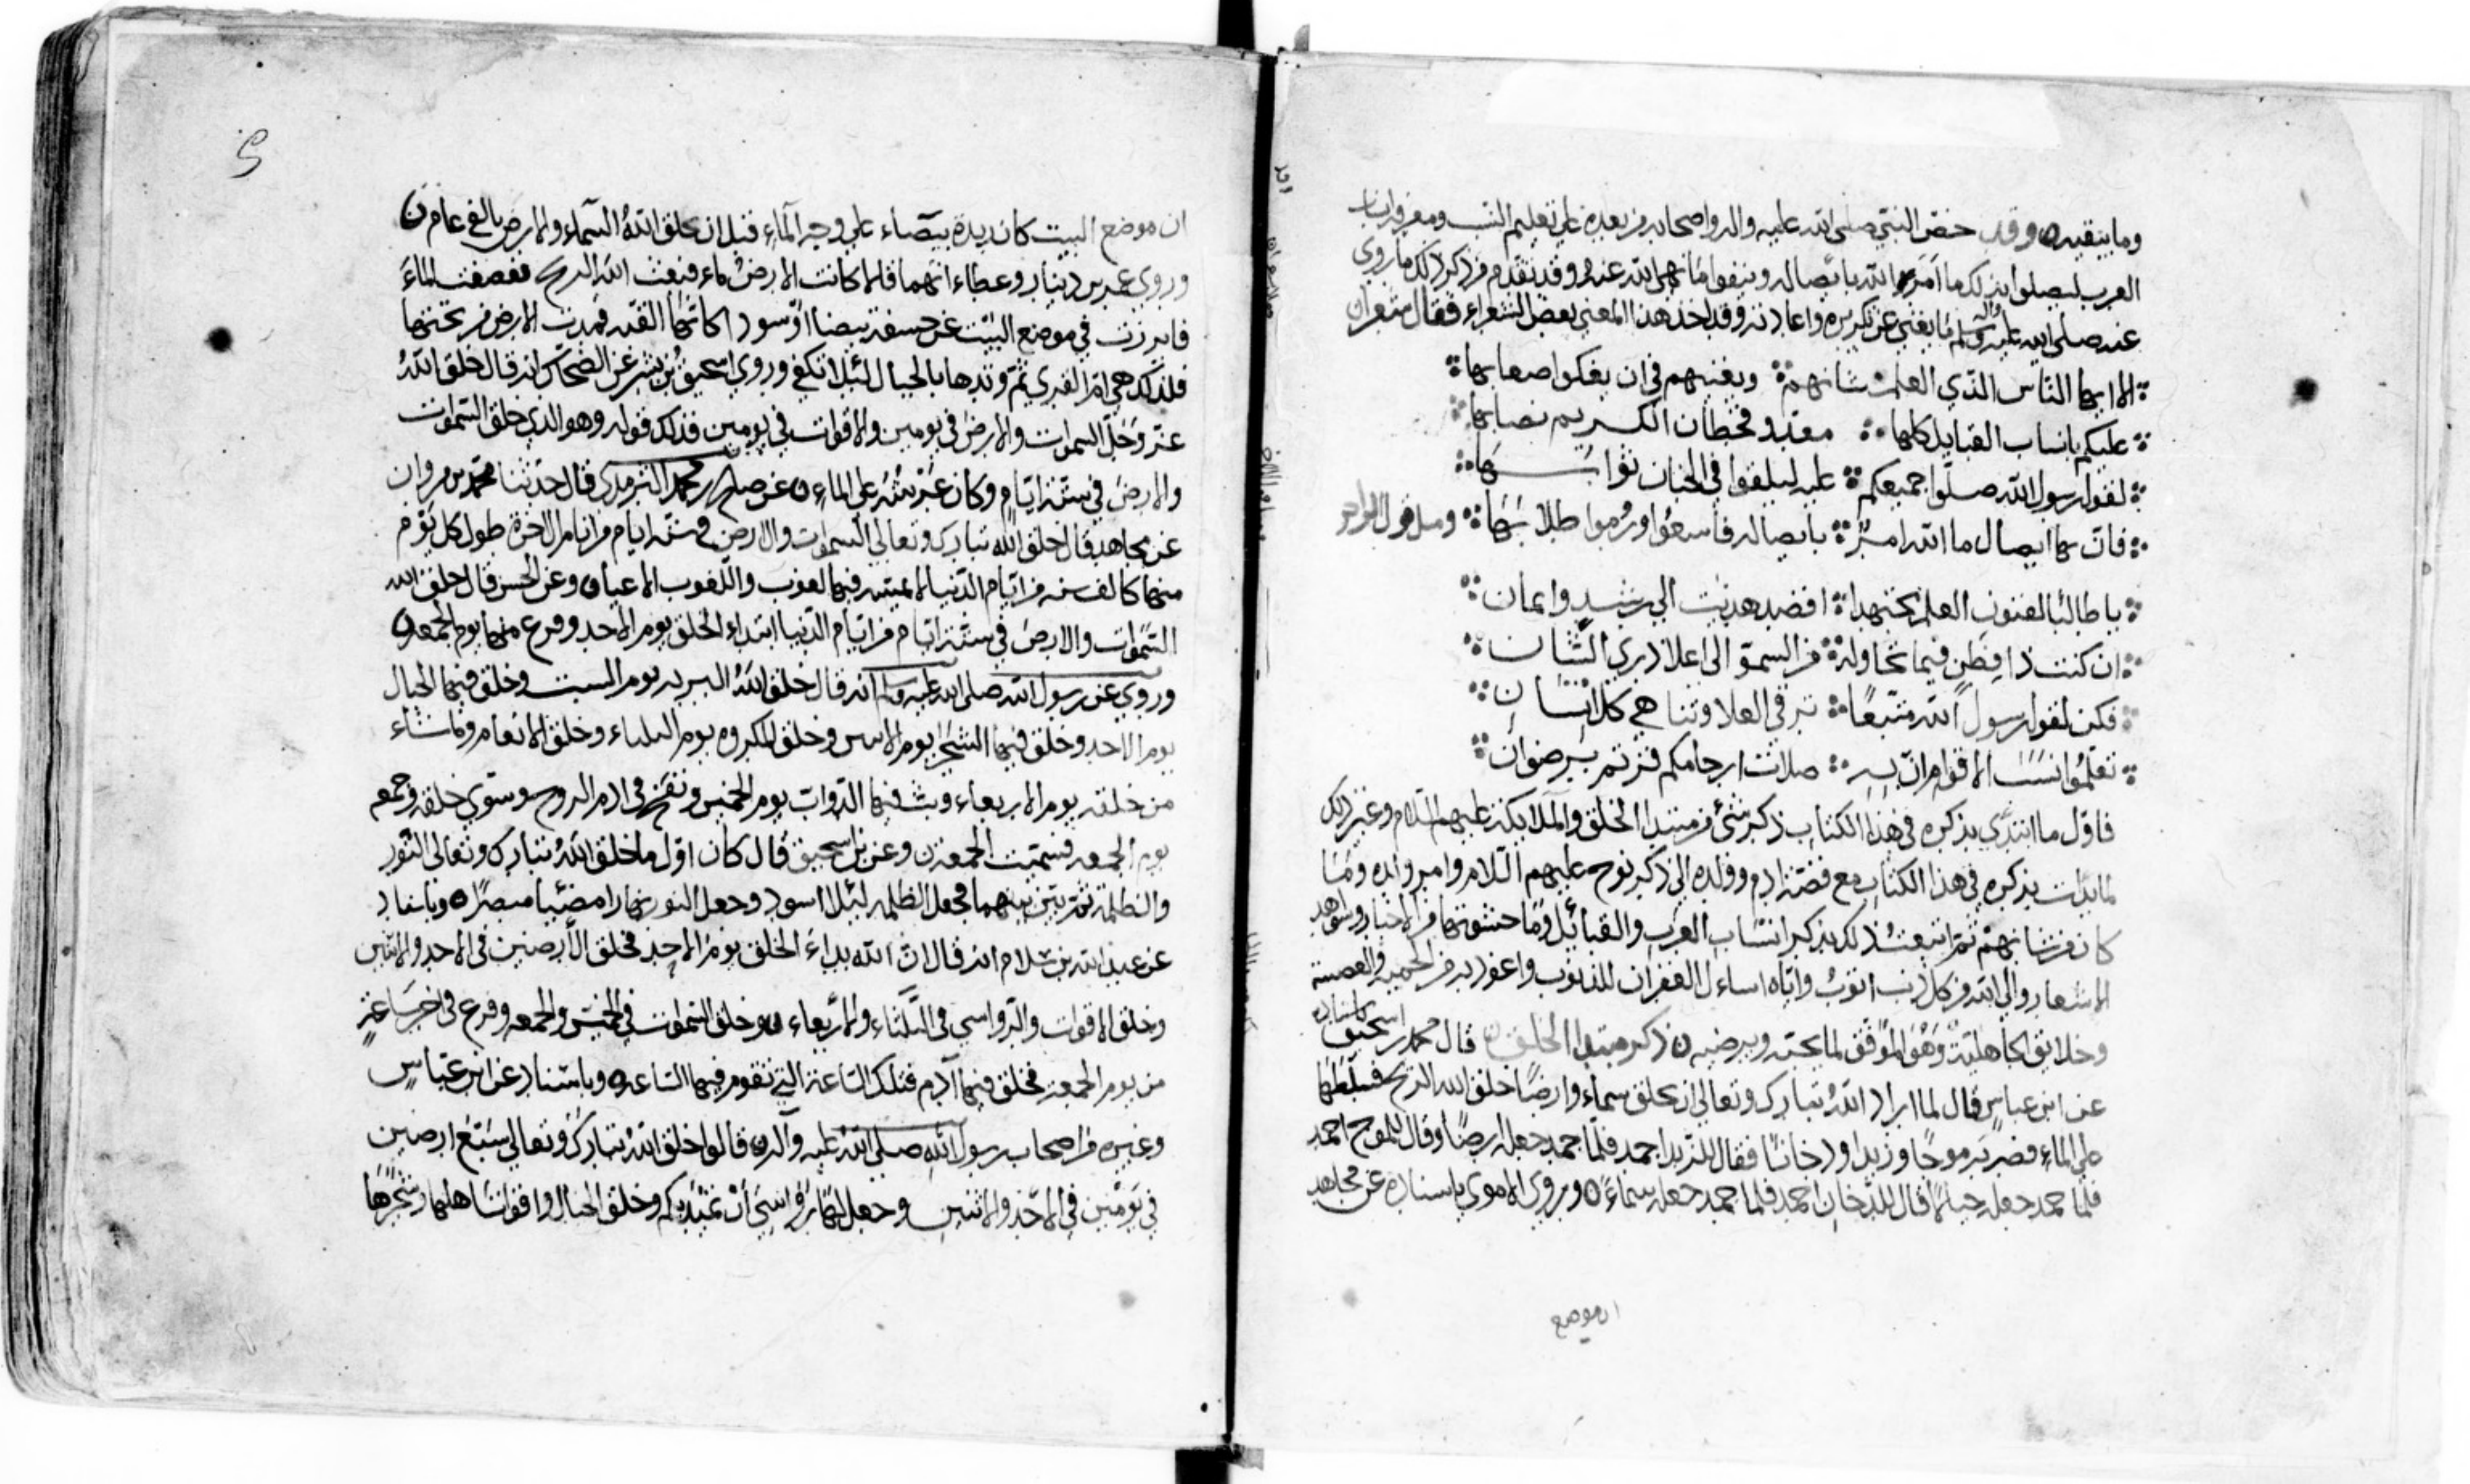 وما يتقيه ٥ وقد حض النبي صلى الله عليه واله واصحابه من بعده على تعليم النسب ومعرفه انساب
العرب ليصلوا بذلك ما امر الله بايصاله ويتقوا ما نهى الله عنه وقد تقدم من ذكر ذلك ما روي
عنه صلى الله عليه واله وسلم ما يغني عن تكريره واعادته وقد اخذ هذا المعنى بعض الشعراء فقال شعرا
الا ايها الناس الذي العلم شانهم ويغنيهم في ان يفكوا صعابها
عليكم بانساب القبايل كلها معد وقحطان الكريم نصابها
لقول رسول الله صلوا جميعكم عليه ليلقوا في الجنان ثوابها
فان بها ايصال ما الله امر بايصاله فاسعوا وروموا طلابها ومثله قول الاخر
يا طالبا لفنون العلم مجتهدا اقصد هديت الى رشد وايمان
ان كنت ذا فطن فيما تحاوله من السمو الى اعلا ذرى الشان
فكن لقول رسول الله متبعا ترقى العلا وتناهي كل انسان
تعلموا نسب الاقوام ان به صلات ارحامكم فزتم برضوان
فاول ما ابتدي بذكره في هذا الكتاب ذكر شئ من مبتدا الخلق والملايكة عليهم السلام وغير ذلك
لما بدات بذكره في هذا الكتاب مع قصة ادم وولده الى ذكر نوح عليهم السلام وامر ولده وما
كان من شانهم ثم اتبعت ذلك بذكر انتساب العرب والقبائل وما حشوتها من الاخبار وشواهد
الاشعار والى الله من كل ذنب اتوب واياه اسائل الغفران للذنوب واعوذ به من الحمية والعصبية
وخلايق الجاهلية وهو الموفق لما يحبه ويرضيه ٥ ذكر مبتدا الخلق قال محمد بن اسحق باسناده
عن ابن عباس قال لما اراد الله تبارك وتعالى ان يخلق سماء وارضا خلق الله الريح فسلطها
على الماء فضربته موجا وزبدا ودخانا فقال للزبد اجمد فلما جمد جعله ارضا وقال للموج اجمد
فلما جمد جعله جبالا قال للدخان اجمد فلما جمد جعله سماء ٥ ويروي الاموي باسناده عن مجاهد
ان موضع
ان موضع البيت كان زبدة بيضاء على وجه الماء قبل ان يخلق الله السماء والارض بالفي عام ن
وروي عن بن دينار وعطاء انهما قالا كانت الارض ماء فبعث الله الريح فصفقت الماء
فابرزت في موضع البيت عن حسفة بيضا او سودا كانها القبة فمدت الارض من تحتها
فلذلك هي ام القرى ثم وتدها بالجبال لئلا تكفي وروي اسحق بن بشر عن الضحاك انه قال خلق الله
عز وجل السموات والارض في يومين والاقوات في يومين فذلك قوله وهو الذي خلق السموات
والارض في ستة ايام وكان عرشه على الماء ٥ عن صالح بن محمد الترمذي قال حدثنا محمد بن مروان
عن مجاهد قال خلق الله تبارك وتعالى السموات والارض في ستة ايام من ايام الاخرة طول كل يوم
منها كالف سنه من ايام الدنيا لا يمسه فيها لغوب واللغوب الاعياء ٥ وعن الحسن قال خلق الله
السموات والارض في ستة ايام من ايام الدنيا ابتداء الخلق يوم الاحد وفرغ منها يوم الجمعه ٥
وروي عن رسول الله صلى الله عليه وسلم انه قال خلق الله البريه يوم السبت وخلق فيها الجبال
يوم الاحد وخلق فيها الشجر يوم الاثنين وخلق المكروه يوم الثلثاء وخلق الانعام وما شاء
من خلقه يوم الاربعاء وبث فيها الدواب يوم الخميس ونفخ في ادم الروح وسوي خلقه وجمع
يوم الجمعه فسميت الجمعة ن وعن بن اسحق قال كان اول ما خلق الله تبارك وتعالى النور
والظلمة ثم ميز بينهما فجعل الظلمه ليلا اسود وجعل النور نهارا مضيئا مبصرا ٥ وباسناد
عن عبد الله بن سلام انه قال ان الله بداء الخلق يوم الاحد فخلق الارضين في الاحد والاثنين
وخلق الاقوات والرواسي في الثلثاء والاربعاء ٥ وخلق السموات في الخميس والجمعه وفرغ في اخر ساعة
من يوم الجمعة فخلق فيها آدم فتلك الساعة التي تقوم فيها الساعه ٥ وباسناد عن ابن عباس
وغيره من اصحاب رسول الله صلى الله عليه وآله ٥ قالوا خلق الله تبارك وتعالى سبع ارضين
في يومين في الاحد والاثنين وجعل لها رواسي أن تميد بكم وخلق الجبال واقوات اهلها وشجرها